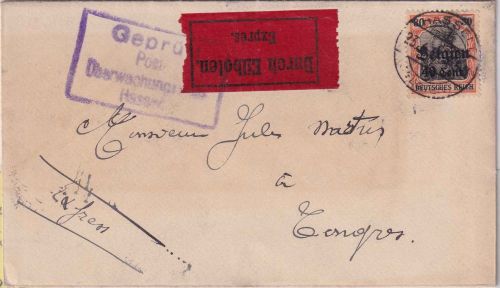 Geprüf
Post
Überwachungs
Hassel
Durch Eilboten.
Exprès.
HASSEL
Belgien
40 Cent
DEUTSCHES REICH
Monsieur Jules
à
Tongres.
Express